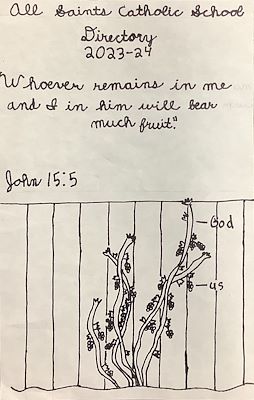 All Saints Catholic School
Directory
2023-24
"Whoever remains in me
and I in him will bear
much fruit."
John 15:5
God
us